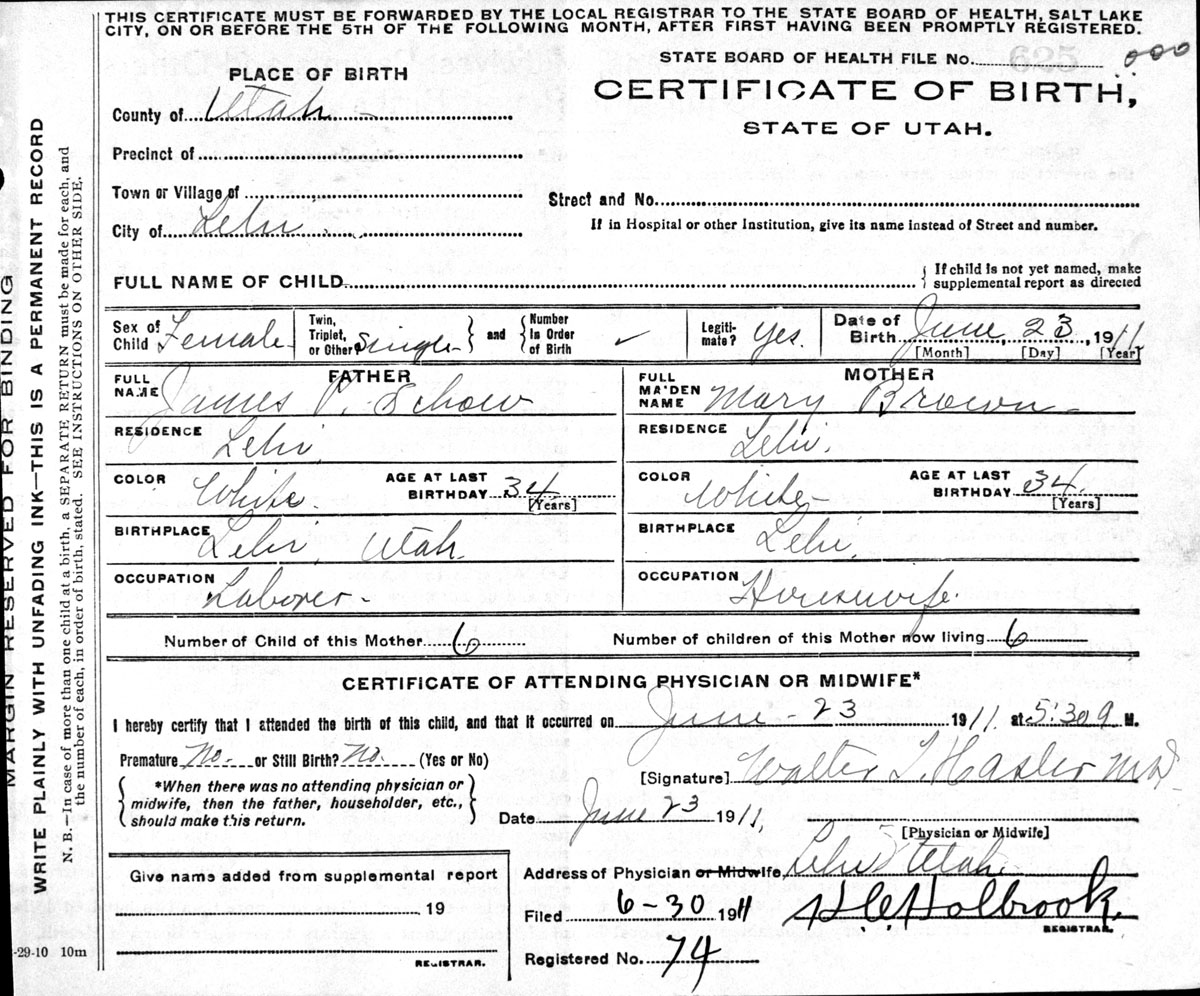 THIS CERTIFICATE MUST BE FORWARDED BY THE LOCAL REGISTRAR TO THE STATE BOARD OF HEALTH, SALT LAKE
CITY, ON OR BEFORE THE 5TH OF THE FOLLOWING MONTH, AFTER FIRST HAVING BEEN PROMPTLY REGISTERED.
STATE BOARD OF HEALTH FILE No. 000
PLACE OF BIRTH
CERTIFICATE OF BIRTH,
STATE OF UTAH.
County of Utah
Precinct of
Town or Village of
Street and No.
City of Lehi
If in Hospital or other Institution, give its name instead of Street and number.
FULL NAME OF CHILD
If child is not yet named, make
supplemental report as directed
Sex of Child Female
Twin, Triplet, or Other Single
and Number In Order of Birth ✓
Legiti-mate? Yes.
Date of Birth June, 23, 1911
[Month] [Day] [Year]
FATHER
FULL NAME James P. Schow
MOTHER
FULL MAIDEN NAME Mary Brown
RESIDENCE Lehi
RESIDENCE Lehi
COLOR White
AGE AT LAST BIRTHDAY 34
[Years]
COLOR White
AGE AT LAST BIRTHDAY 34
[Years]
BIRTHPLACE Lehi, Utah
BIRTHPLACE Lehi
OCCUPATION Laborer
OCCUPATION Housewife
Number of Child of this Mother 6
Number of children of this Mother now living 6
CERTIFICATE OF ATTENDING PHYSICIAN OR MIDWIFE*
I hereby certify that I attended the birth of this child, and that it occurred on June - 23 1911 at 5:30 a M.
Premature No. or Still Birth? No. (Yes or No)
*When there was no attending physician or
midwife, then the father, householder, etc.,
should make this return.
[Signature] Walter T. Hasler MD
Date June 23 1911,
[Physician or Midwife]
Give name added from supplemental report
19
REGISTRAR.
Address of Physician or Midwife, Lehi Utah
Filed 6-30 1911 H C Holbrook
REGISTRAR.
Registered No. 74
-29-10 10m
MARGIN RESERVED FOR BINDING
WRITE PLAINLY WITH UNFADING INK—THIS IS A PERMANENT RECORD
N. B.—In case of more than one child at a birth, a SEPARATE RETURN must be made for each, and
the number of each, in order of birth, stated. SEE INSTRUCTIONS ON OTHER SIDE.